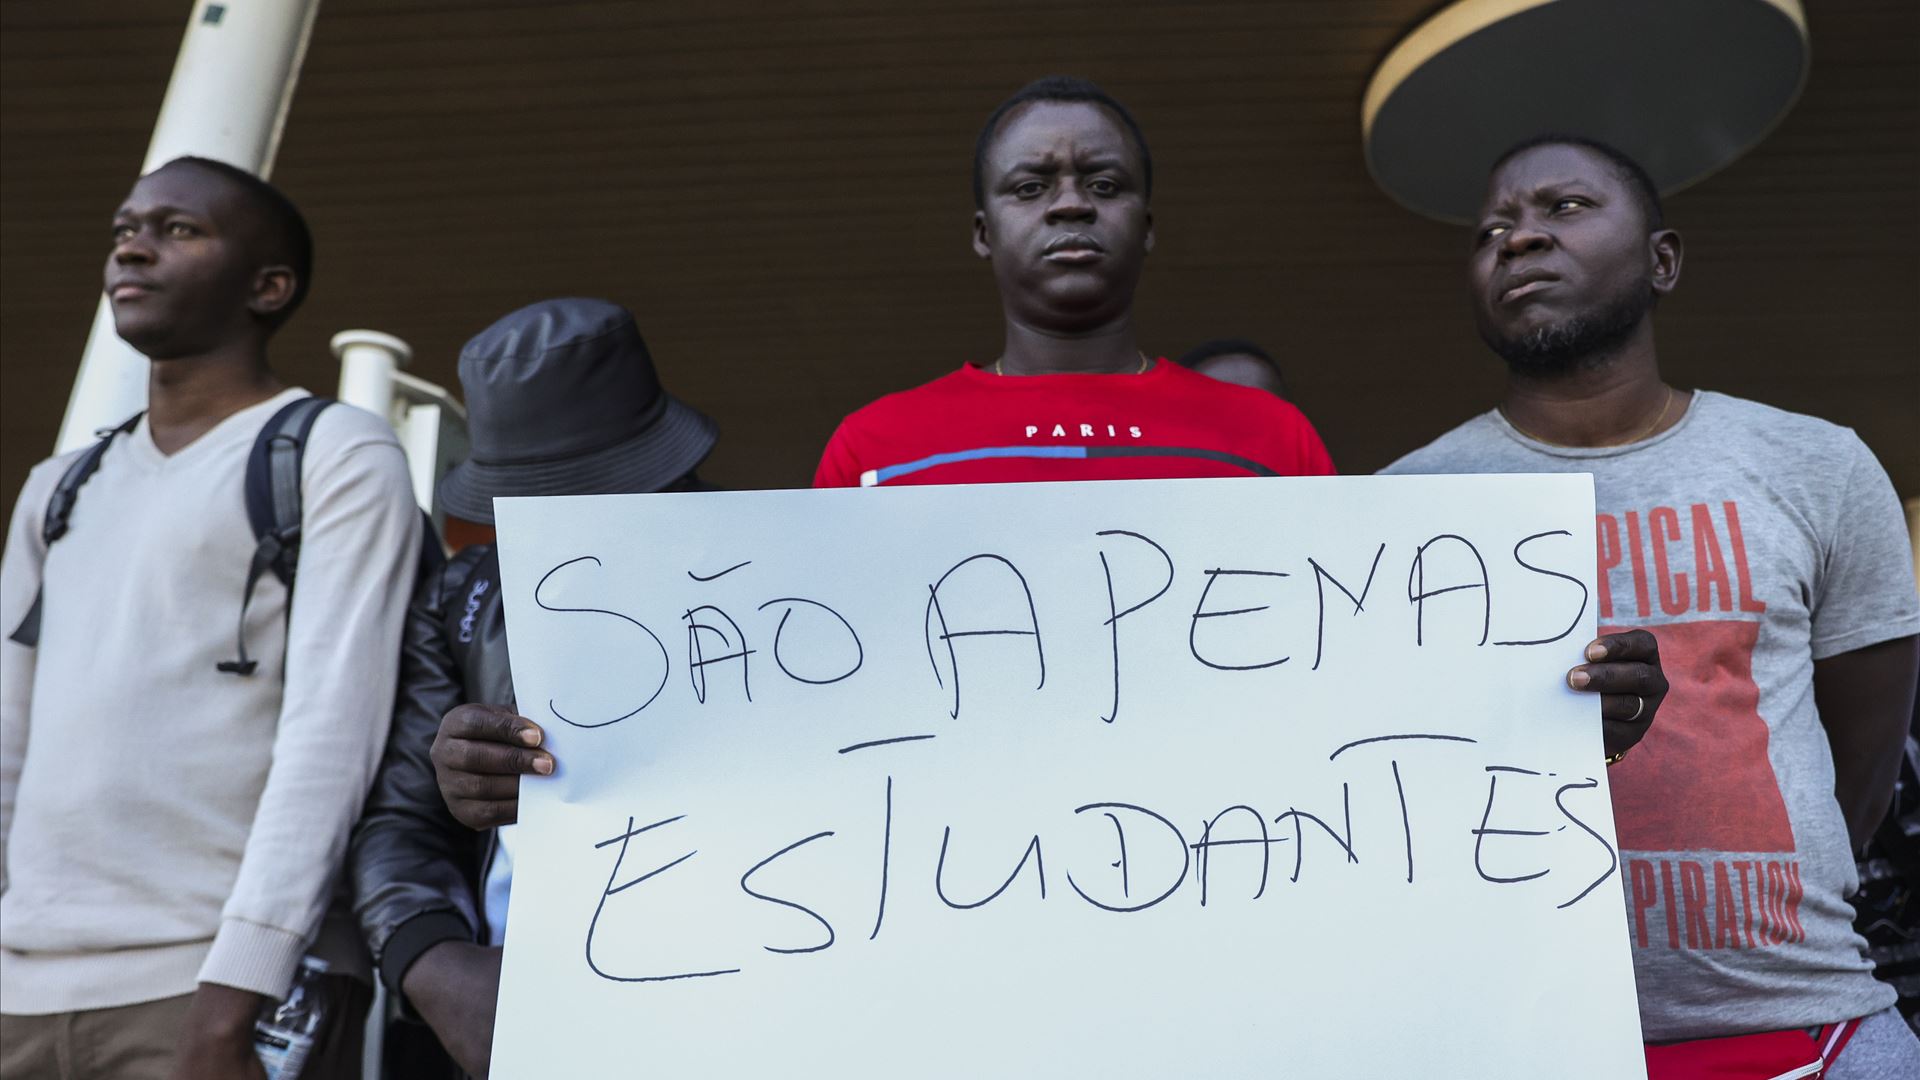 PARIS
SÃO APENAS
ESTUDANTES
PICAL
PIRATION
DAKINE